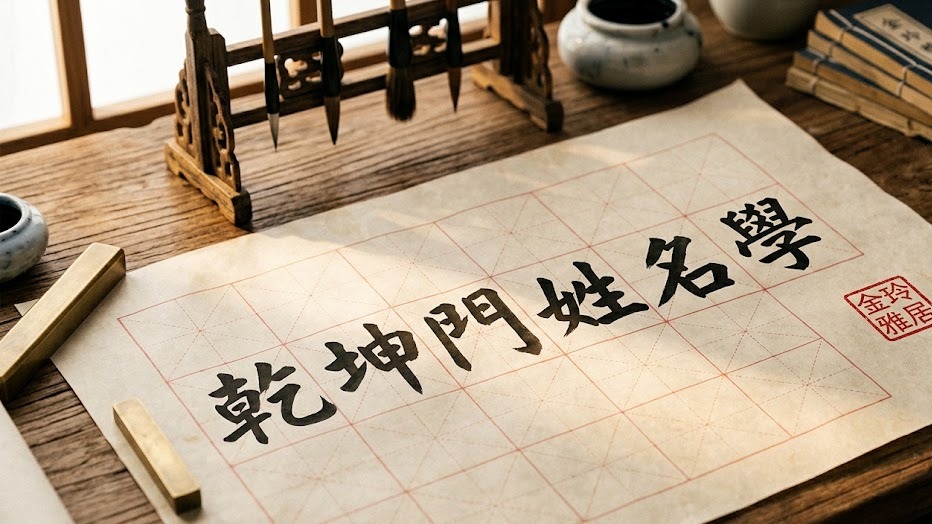 乾坤門姓名學
金玲
雅居